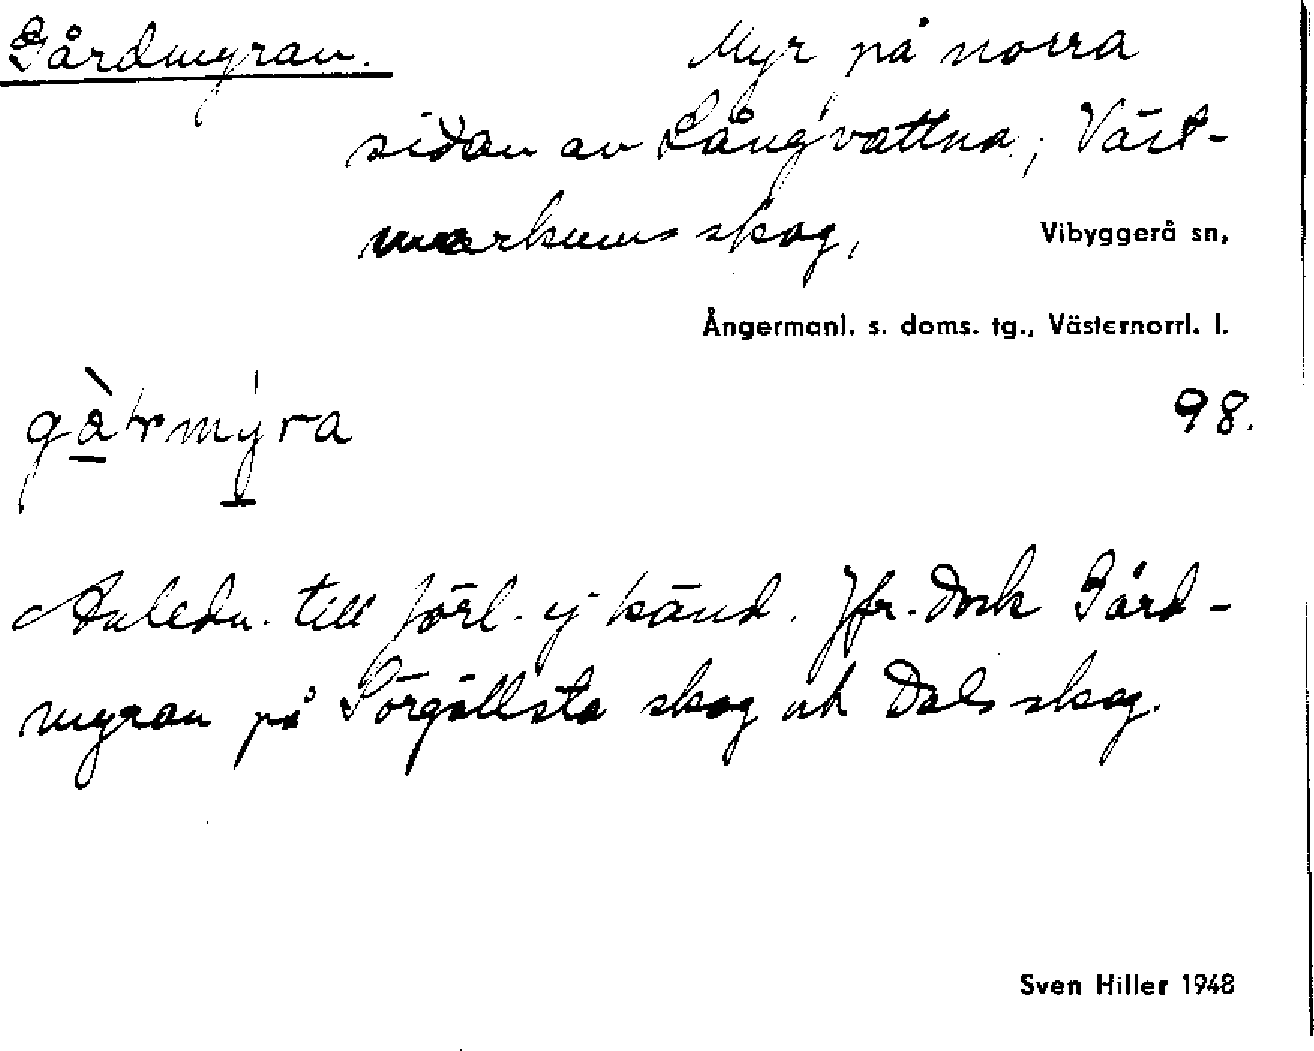 Gårdmyran. Myr på norra
sidan av Långvattna, Väst-
markums skog, Vibyggerå sn,
Ångermanl. s. doms. tg., Västernorrl. l.
98.
Anledn. till förl. ej känd. Jfr. dock Gård-
myran på Sörgällsta skog och Dals skog.
Sven Hiller 1948